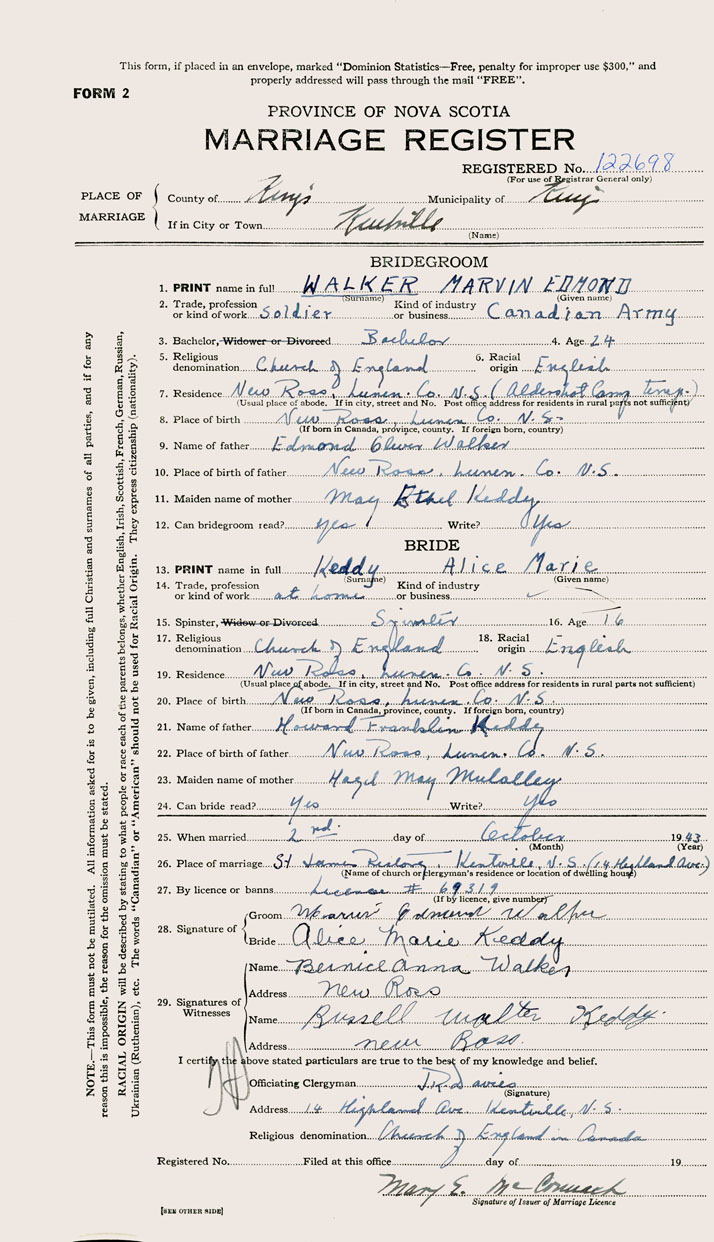 This form, if placed in an envelope, marked "Dominion Statistics—Free, penalty for improper use $300," and
properly addressed will pass through the mail "FREE".
FORM 2
PROVINCE OF NOVA SCOTIA
MARRIAGE REGISTER
REGISTERED No. 122698
(For use of Registrar General only)
PLACE OF MARRIAGE
County of Kings Municipality of Kings
If in City or Town Kentville
(Name)
BRIDEGROOM
1. PRINT name in full WALKER MARVIN EDMOND
(Surname) (Given name)
2. Trade, profession or kind of work Soldier Kind of industry or business Canadian Army
3. Bachelor, Widower or Divorced Bachelor 4. Age 24
5. Religious denomination Church of England 6. Racial origin English
7. Residence New Ross, Lunen. Co. N.S. (Aldershot Camp temp.)
(Usual place of abode. If in city, street and No. Post office address for residents in rural parts not sufficient)
8. Place of birth New Ross, Lunen. Co. N.S.
(If born in Canada, province, county. If foreign born, country)
9. Name of father Edmond Oliver Walker
10. Place of birth of father New Ross, Lunen. Co. N.S.
11. Maiden name of mother May Ethel Keddy
12. Can bridegroom read? yes Write? Yes
BRIDE
13. PRINT name in full Keddy Alice Marie
(Surname) (Given name)
14. Trade, profession or kind of work at home Kind of industry or business
15. Spinster, Widow or Divorced Spinster 16. Age 16
17. Religious denomination Church of England 18. Racial origin English
19. Residence New Ross, Lunen. Co. N.S.
(Usual place of abode. If in city, street and No. Post office address for residents in rural parts not sufficient)
20. Place of birth New Ross, Lunen. Co. N.S.
(If born in Canada, province, county. If foreign born, country)
21. Name of father Howard Franklin Keddy
22. Place of birth of father New Ross, Lunen. Co. N.S.
23. Maiden name of mother Hazel May Mulalley
24. Can bride read? Yes Write? Yes
25. When married 2nd. day of October 1943
(Month) (Year)
26. Place of marriage St James Rectory, Kentville, N.S. (14 Highland Ave.)
(Name of church or clergyman's residence or location of dwelling house)
27. By licence or banns License # 69319
(If by licence, give number)
28. Signature of
Groom Marvin Edmond Walker
Bride Alice Marie Keddy
29. Signatures of Witnesses
Name Bernice Anna Walker
Address New Ross
Name Russell Walter Keddy
Address New Ross.
I certify the above stated particulars are true to the best of my knowledge and belief.
Officiating Clergyman J.R. Davies
(Signature)
Address 14 Highland Ave. Kentville, N.S.
Religious denomination Church of England in Canada
Registered No. Filed at this office day of 19
Mary E. McCormack
Signature of Issuer of Marriage Licence
[SEE OTHER SIDE]
NOTE.—This form must not be mutilated. All information asked for is to be given, including full Christian and surnames of all parties, and if for any
reason this is impossible, the reason for the omission must be stated.
RACIAL ORIGIN will be described by stating to what people or race each of the parents belongs, whether English, Irish, Scottish, French, German, Russian,
Ukrainian (Ruthenian), etc. The words "Canadian" or "American" should not be used for Racial Origin. They express citizenship (nationality).